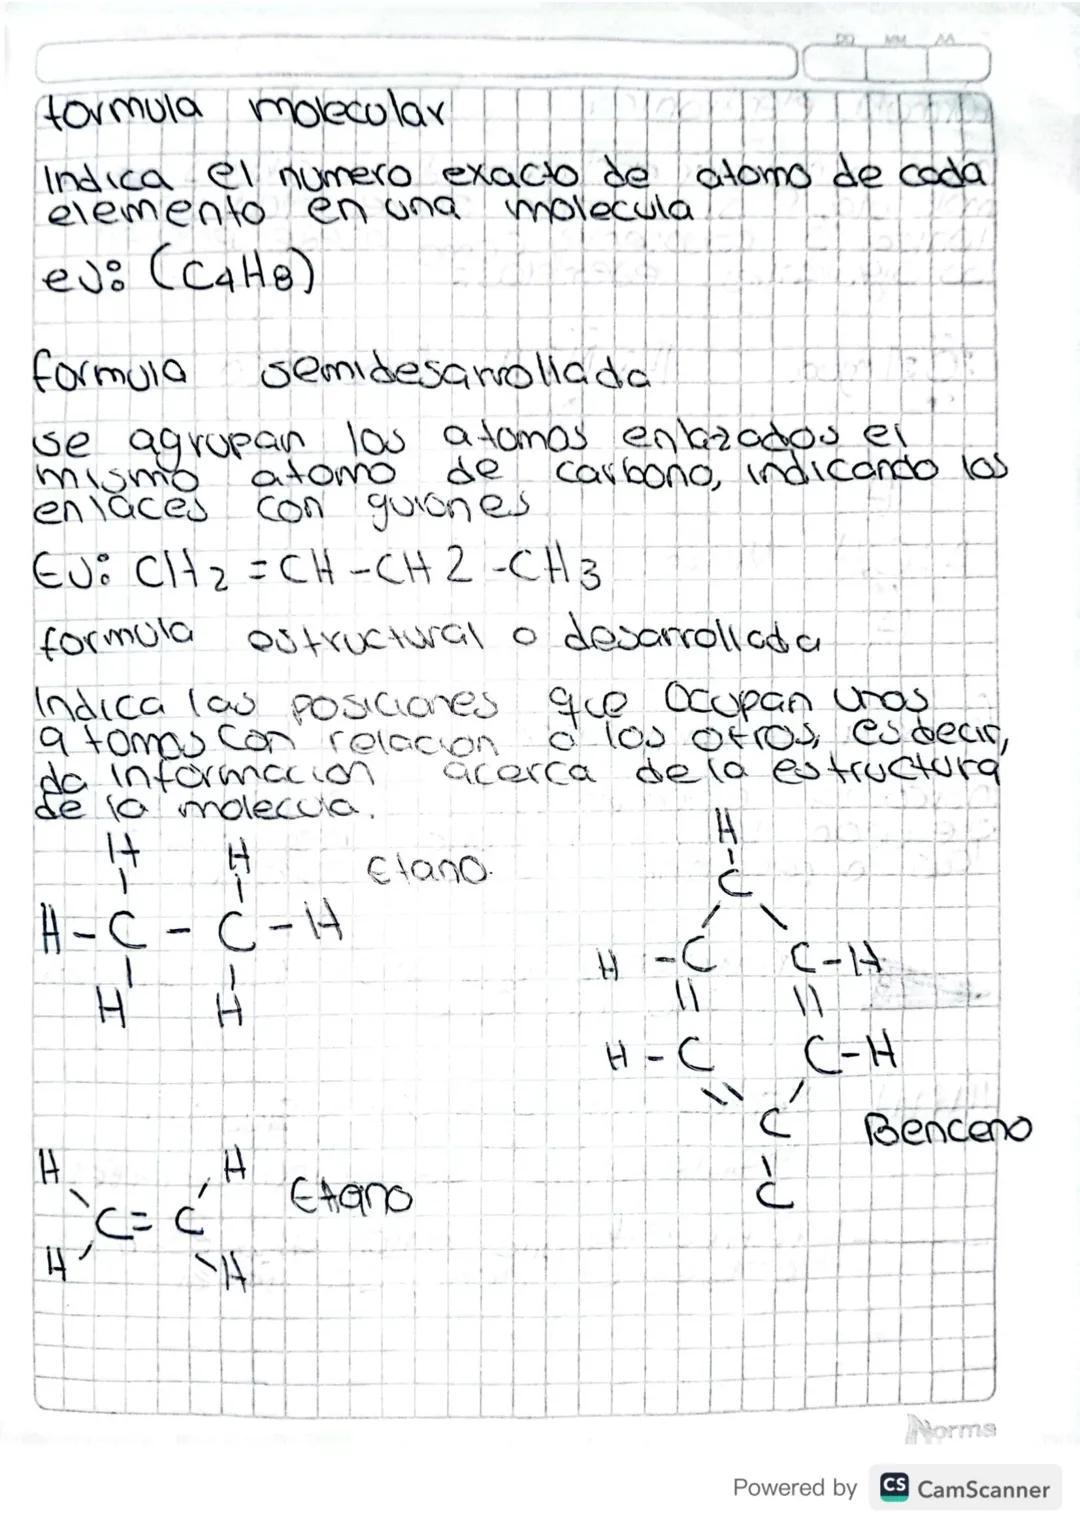 DD MM AA
formula molecular
Indica el numero exacto de atomo de cada
elemento en una molecula
eJ: (C4H8)
formula semidesarrollada
se agrupan los atomos enlazados el
mismo atomo de carbono, indicando los
enlaces con guiones
EJ: CH2 = CH - CH2 - CH3
formula estructural o desarrollada
Indica las posiciones que ocupan unos
atomos con relacion a los otros, es decir,
da informacion acerca de la estructura
de la molecula.
H H Etano.
H - C - C - H
H H
H
C
H - C C - H
H - C C - H
C Benceno
C
H H
C = C Etano
H H
Norma
Powered by CS CamScanner